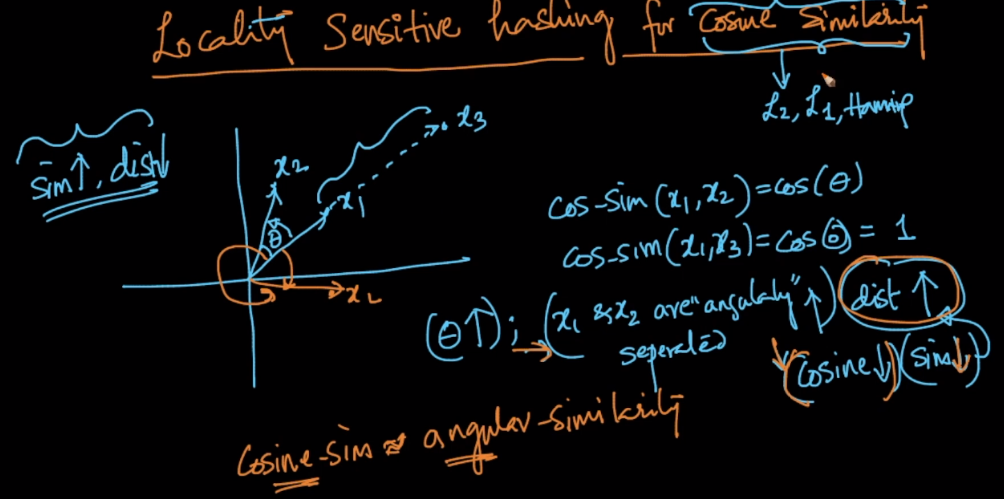 Locality Sensitive hashing for Cosine Similarity
L2, L1, Hamming
sim↑, dist↓
x3
x2
x1
θ
x2
cos-sim(x1,x2)=cos(θ)
cos-sim(x1,x3)=cos(0)= 1
(θ↑); → (x1 & x2 are "angularly"↑) (dist ↑)
seperated
(cosine↓)(sim↓)
Cosine-sim ≈ angular-similarity